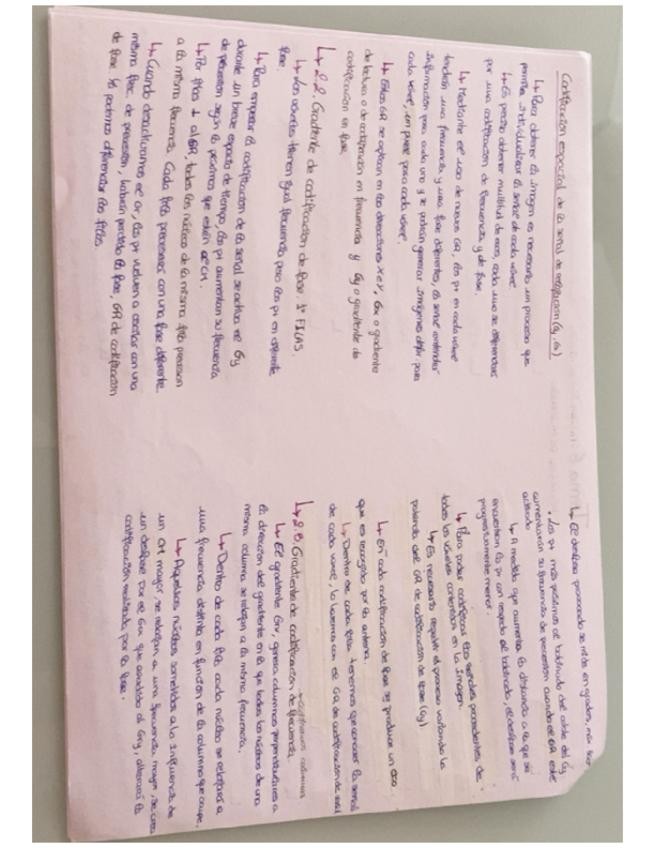 Codificación espacial de la señal de (Gy, Gx)
↳ Para obtener la imagen es necesario un proceso que
permita individualizar la señal de cada vóxel.
↳ Es preciso obtener multitud de ecos, cada uno se diferencia
por una codificación de frecuencia y de fase.
↳ Mediante el uso de nuevos GR, los p+ en cada vóxel
tendrán una frecuencia y una fase diferentes, la señal
información para cada uno y se podrán generar imágenes
cada vóxel, un píxel para cada vóxel.
↳ Estos GR se aplican en las direcciones X e Y, Gx o gradiente
de lectura o de codificación en frecuencia y Gy o gradiente de
codificación en fase.
↳ 2.2. Gradiente de codificación de fase. 1º FILAS.
↳ Los vóxeles tienen igual frecuencia pero los p+ en diferente
fase.
↳ Para empezar la codificación de la señal se activa el Gy
durante un breve espacio de tiempo, los p+ aumentan su frecuencia
de precesión según lo próximos que estén al CM.
↳ Por filas ⊥ al GR, todos los núcleos de la misma fila precesan
a la misma frecuencia. Cada fila precesará con una fase diferente.
↳ Cuando desactivamos el Gr, los p+ vuelven a estar con una
misma frec. de precesión, habrán perdido la fase, GR de codificación
de fase. Ya podemos diferenciar las filas
↳ El desfase provocado se mide en grados,
• Los p+ más próximos al lado del Gy
aumentarán su frecuencia de precesión cuando el GR esté
activado
↳ A medida que aumenta la distancia a la que se
encuentran los p+ con respecto al el desfase será
progresivamente menor.
↳ Para poder codificar las señales procedentes de
todos los vóxeles contenidos en la imagen.
↳ Es necesario repetir el proceso variando la
potencia del GR de codificación de fase (Gy)
↳ En cada codificación de fase se produce un eco
que es recogido por la antena.
↳ Dentro de cada fila tenemos que conocer la señal
de cada vóxel, lo haremos con el GR de codificación de
↳ 2.3. Gradiente de codificación de frecuencia.
↳ El gradiente Grx, genera columnas perpendiculares a
la dirección del gradiente en la que todos los núcleos de una
misma columna se relajan a la misma frecuencia.
↳ Dentro de cada fila cada núcleo se relajará a
una frecuencia distinta en función de la columna que ocupe.
↳ Aquellos núcleos sometidos a la influencia de
un CM mayor, se relajan a una frecuencia mayor, se crea
un desfase por el Gx que añadido al Gry, alterará la
codificación realizada por la fase.